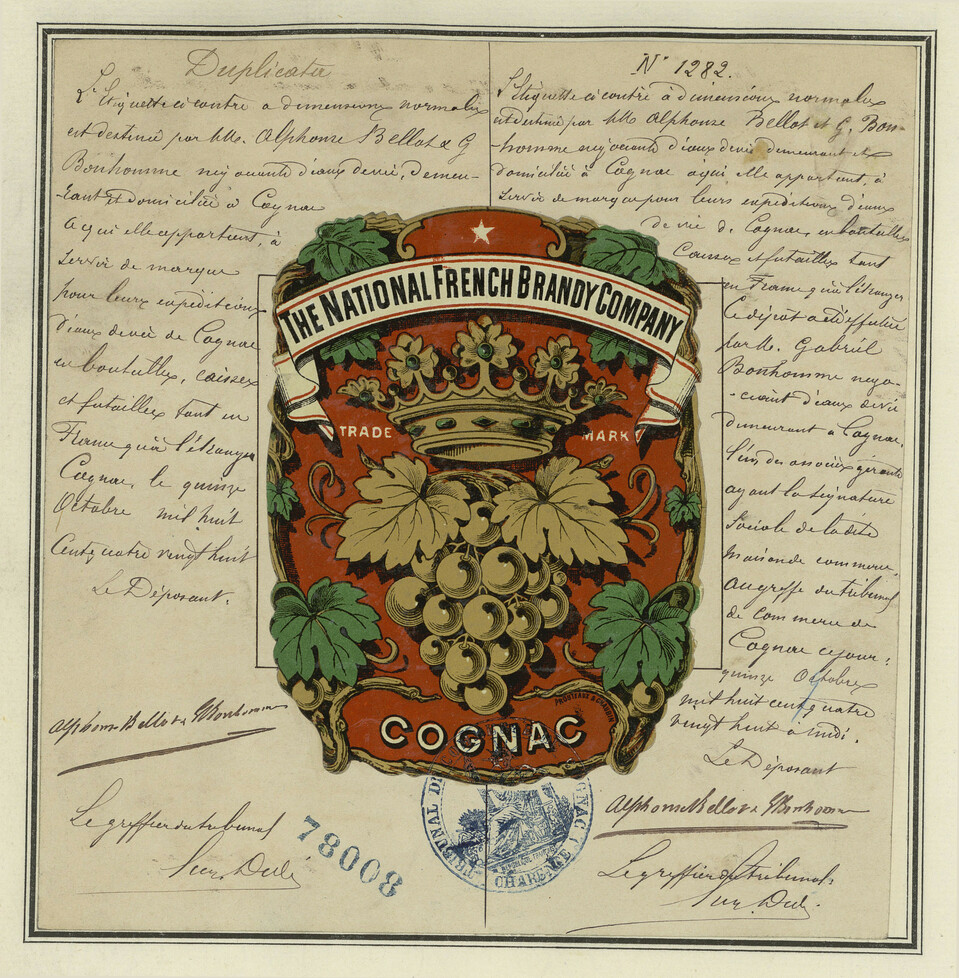 Duplicata
L'Etiquette ci contre a dimensions normales
est destinée par MM. Alphonse Bellot & G
Bonhomme négociants d'eaux de vie, demeu-
-rant et domiciliés à Cognac
a qui elle appartient, à
servir de marque
pour leurs expéditions
d'eaux de vie de Cognac
en bouteilles, caisses
et futailles tant en
France qu'à l'étranger
Cognac, le quinze
Octobre mil huit
cent quatre vingt huit
Le Déposant.
Alphonse Bellot & G Bonhomme
Le greffier du tribunal
78008
N° 1282.
L'étiquette ci contre à dimensions normales
est destinée par MM Alphonse Bellot et G. Bon-
-homme négociants d'eaux de vie demeurant et
domiciliés à Cognac a qui elle appartient, à
servir de marque pour leurs expéditions d'eaux
de vie de Cognac, en bouteilles
Caisses et futailles tant
en France qu'à l'étranger
Ce dépot a été effectué
par M. Gabriel
Bonhomme négo-
-ciant d'eaux de vie
demeurant à Cognac,
l'un des associés gérants
ayant la signature
sociale de la dite
maison de commerce,
au greffe du tribunal
de commerce de
Cognac ce jour:
quinze Octobre
mil huit cent quatre
vingt huit a midi.
Le Déposant
Alphonse Bellot & G Bonhomme
Le greffier du tribunal
THE NATIONAL FRENCH BRANDY COMPANY
TRADE MARK
PROUTEAUX & CHAMBON
COGNAC
TRIBUNAL DE COGNAC
CHARENTE